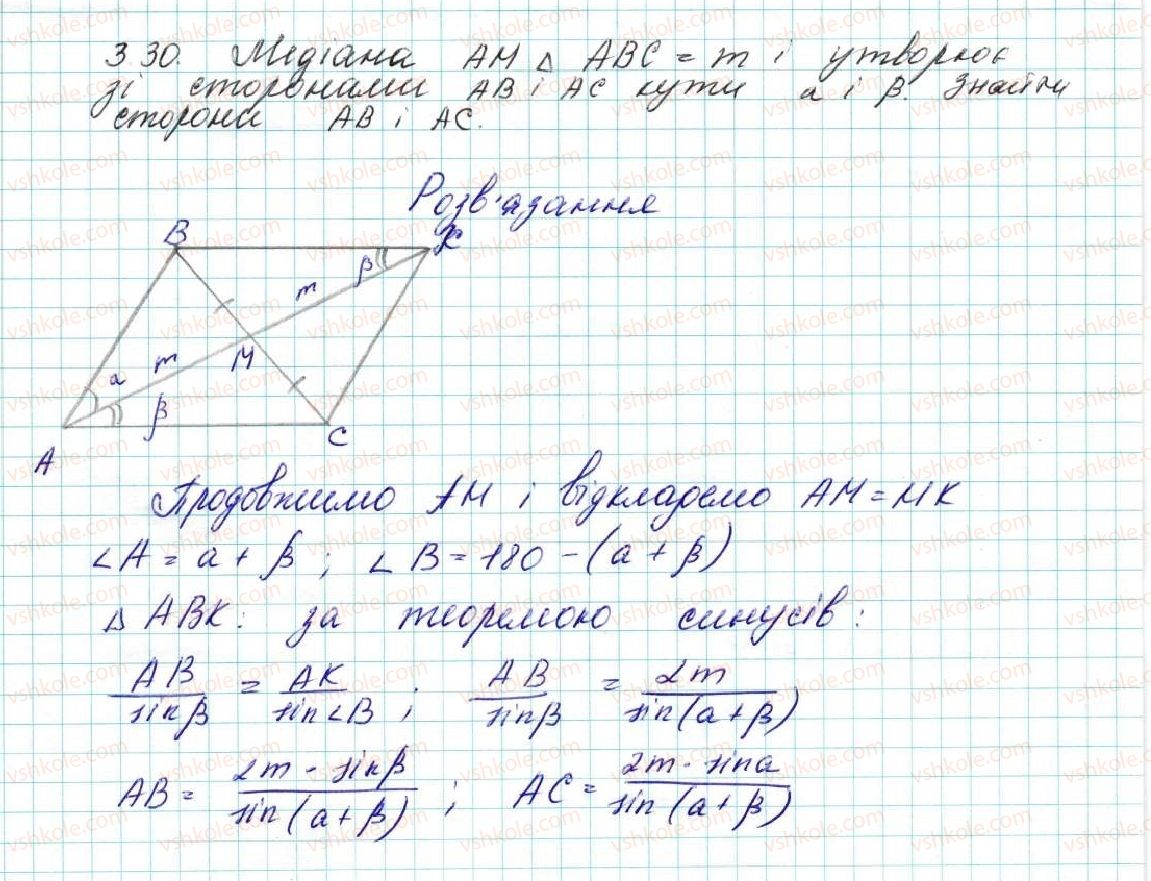 3.30. Медіана AM △ ABC = m і утворює
зі сторонами AB і AC кути a і β. Знайти
сторони AB і AC.
Розв'язання
B K
β
m
m M
a
β
A C
Продовжимо AM і відкладемо AM = MK
∠A = a + β ; ∠B = 180 - (a + β)
△ ABK: за теоремою синусів:
AB/sinβ = AK/sin∠B ; AB/sinβ = 2m/sin(a+β)
AB = 2m · sinβ/sin(a+β) ; AC = 2m · sina/sin(a+β)
vshkole.com